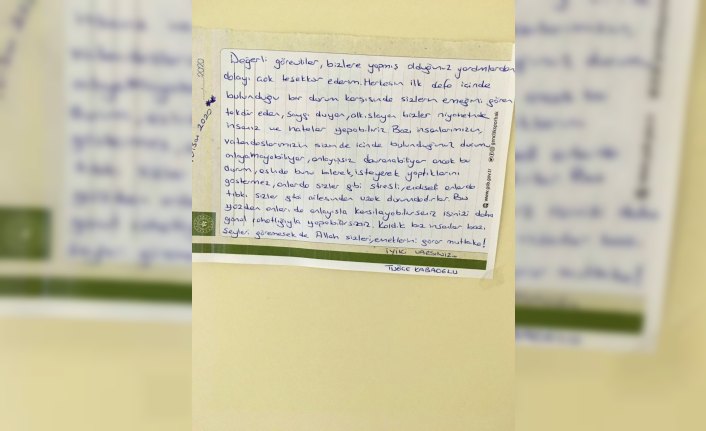 Değerli görevliler, bizlere yapmış olduğunuz yardımlardan
dolayı çok teşekkür ederim. Herkesin ilk defa içinde
bulunduğu bir durum karşısında sizlerin emeğini gören
takdir eden, saygı duyan, alkışlayan bizler nihayetinde
insanız ve hatalar yapabiliriz. Bazı insanlarımızın,
vatandaşlarımızın sizin de içinde bulunduğunuz durumu
anlayamayabiliyor, anlayışsız davranabiliyor ancak bu
durum, aslında bunu bilerek, isteyerek yaptıklarını
göstermez, onlarda sizler gibi stresli, endişeli onlarda
tıpkı sizler gibi ailesinden uzak durmadırlar. Bu
yüzden onları da anlayışla karşılayabilirseniz işinizi daha
gönül rahatlığıyla yapabilirsiniz. Kaldı ki bazı insanlar bazı
şeyleri göremese de Allah sizleri, emeklerini görür mutlaka!
İYİKİ VARSINIZ...
TUĞÇE KABAOĞLU
2020
2020
www.gsb.gov.tr
@gencliksporbak